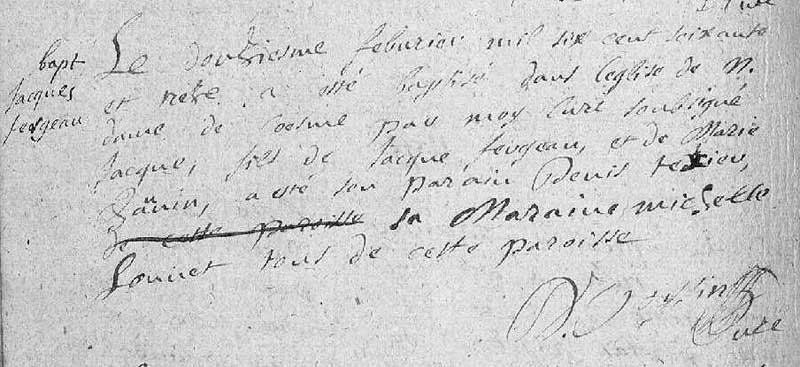 bapt
Jacques
feugeau
Le douziesme feburier mil six cent soixante
et treze a esté baptisé dans leglise de N.
dame de Coesme par moy curé soubsigné
Jacque, fils de Jacque feugeau, et de Marie
a esté son parain Denis
de cette paroisse sa Maraine michelle
Louuet tous de cette paroisse
Curé